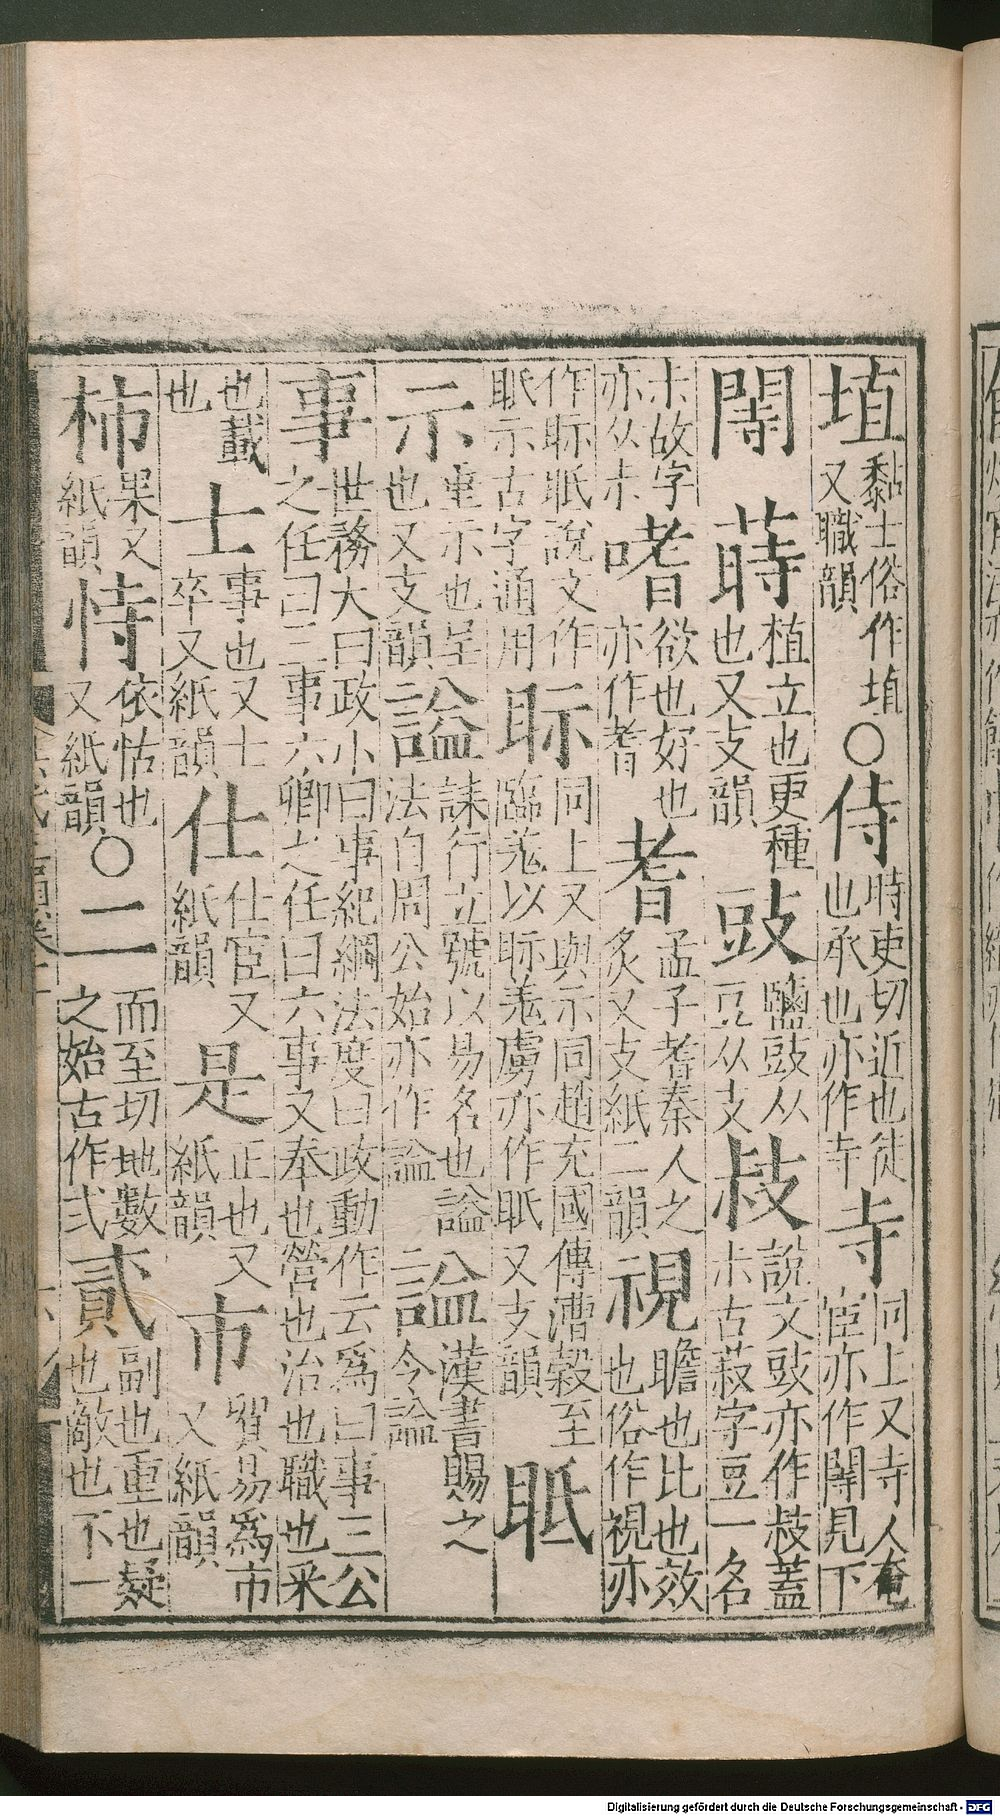 埴黏土俗作埴又職韻○侍時吏切近也徒也承也亦作寺寺同上又寺人奄宦亦作閽見下
閽蒔植立也更種也又支韻豉鹽豉从豆从支敊說文豉亦作敊蓋尗古菽字豆一名
尗故字亦从尗嗜欲也好也亦作耆耆孟子耆秦人之炙又支紙二韻視瞻也比也效也俗作視亦
作眎眡說文作眡示古字通用眎同上又與示同趙充國傳漕穀至臨羌以眎羌虜亦作眡又支韻眡
示垂示也呈也又支韻謚誄行立號以易名也謚法自周公始亦作諡諡漢書賜之令諡
事世務大曰政小曰事紀綱法度曰政動作云爲曰事三公之任曰三事六卿之任曰六事又奉也營也治也職也采
也載也士事也又士卒又紙韻仕仕宦又紙韻是正也又紙韻市貿易爲市又紙韻
柿果又紙韻恃依怙也又紙韻○二而至切地數之始古作弍貳副也重也疑也敵也不一
Digitalisierung gefördert durch die Deutsche Forschungsgemeinschaft - DFG